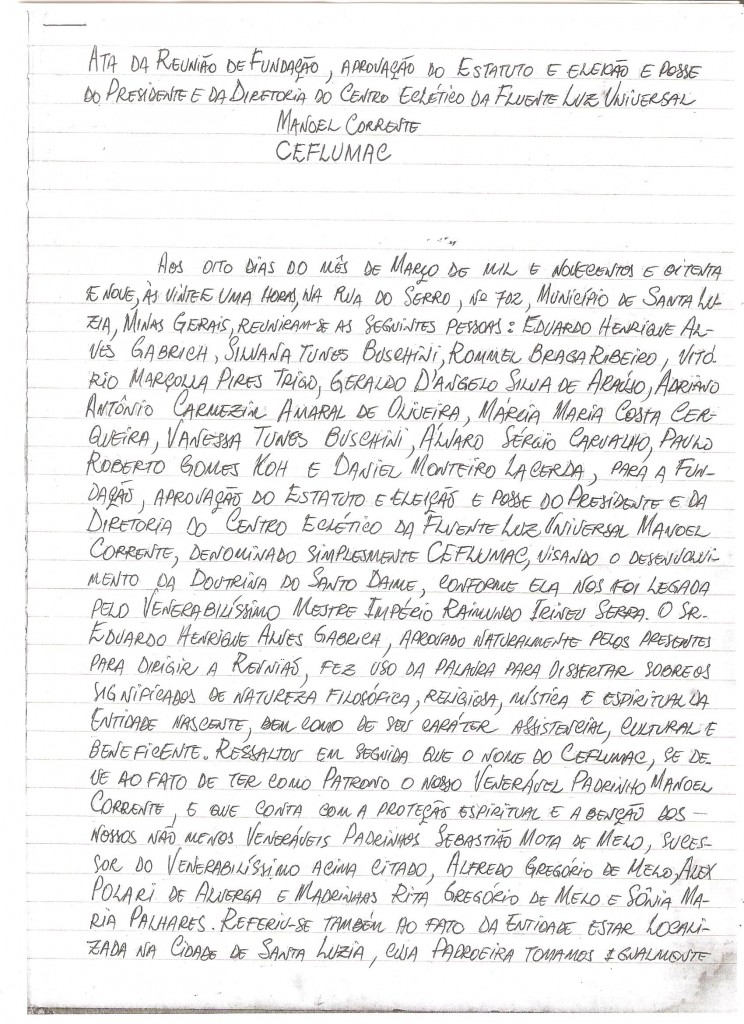 ATA DA REUNIÃO DE FUNDAÇÃO, APROVAÇÃO DO ESTATUTO E ELEIÇÃO E POSSE
DO PRESIDENTE E DA DIRETORIA DO CENTRO ECLÉTICO DA FLUENTE LUZ UNIVERSAL
MANOEL CORRENTE
CEFLUMAC
AOS OITO DIAS DO MÊS DE MARÇO DE MIL E NOVECENTOS E OITENTA
E NOVE, ÀS VINTE E UMA HORAS, NA RUA DO SERRO, Nº 702, MUNICÍPIO DE SANTA LU-
ZIA, MINAS GERAIS, REUNIRAM-SE AS SEGUINTES PESSOAS: EDUARDO HENRIQUE AL-
VES GABRICH, SILVANA TUNES BUSCHINI, ROMMEL BRAGA RIBEIRO, VITÓ-
RIO MARÇOLLA PIRES TRIGO, GERALDO D'ANGELO SILVA DE ARAÚJO, ADRIANO
ANTÔNIO CARMEZIM AMARAL DE OLIVEIRA, MÁRCIA MARIA COSTA CER-
QUEIRA, VANESSA TUNES BUSCHINI, ÁLVARO SÉRGIO CARVALHO, PAULO
ROBERTO GOMES KOH E DANIEL MONTEIRO LACERDA, PARA A FUN-
DAÇÃO, APROVAÇÃO DO ESTATUTO E ELEIÇÃO E POSSE DO PRESIDENTE E DA
DIRETORIA DO CENTRO ECLÉTICO DA FLUENTE LUZ UNIVERSAL MANOEL
CORRENTE, DENOMINADO SIMPLESMENTE CEFLUMAC, VISANDO O DESENVOLVI-
MENTO DA DOUTRINA DO SANTO DAIME, CONFORME ELA NOS FOI LEGADA
PELO VENERABILÍSSIMO MESTRE IMPÉRIO RAIMUNDO IRINEU SERRA. O SR.
EDUARDO HENRIQUE ALVES GABRICH, APROVADO NATURALMENTE PELOS PRESENTES
PARA DIRIGIR A REUNIÃO, FEZ USO DA PALAVRA PARA DISSERTAR SOBRE OS
SIGNIFICADOS DE NATUREZA FILOSÓFICA, RELIGIOSA, MÍSTICA E ESPIRITUAL DA
ENTIDADE NASCENTE, BEM COMO DE SEU CARÁTER ASSISTENCIAL, CULTURAL E
BENEFICENTE. RESSALTOU EM SEGUIDA QUE O NOME DO CEFLUMAC, SE DE-
VE AO FATO DE TER COMO PATRONO O NOSSO VENERÁVEL PADRINHO MANOEL
CORRENTE, E QUE CONTA COM A PROTEÇÃO ESPIRITUAL E A BENÇÃO DOS —
NOSSOS NÃO MENOS VENERÁVEIS PADRINHOS SEBASTIÃO MOTA DE MELO, SUCES-
SOR DO VENERABILÍSSIMO ACIMA CITADO, ALFREDO GREGÓRIO DE MELO, ALEX
POLARI DE ALVERGA E MADRINHAS RITA GREGÓRIO DE MELO E SÔNIA MA-
RIA PALHARES. REFERIU-SE TAMBÉM AO FATO DA ENTIDADE ESTAR LOCALI-
ZADA NA CIDADE DE SANTA LUZIA, CUJA PADROEIRA TOMAMOS IGUALMENTE